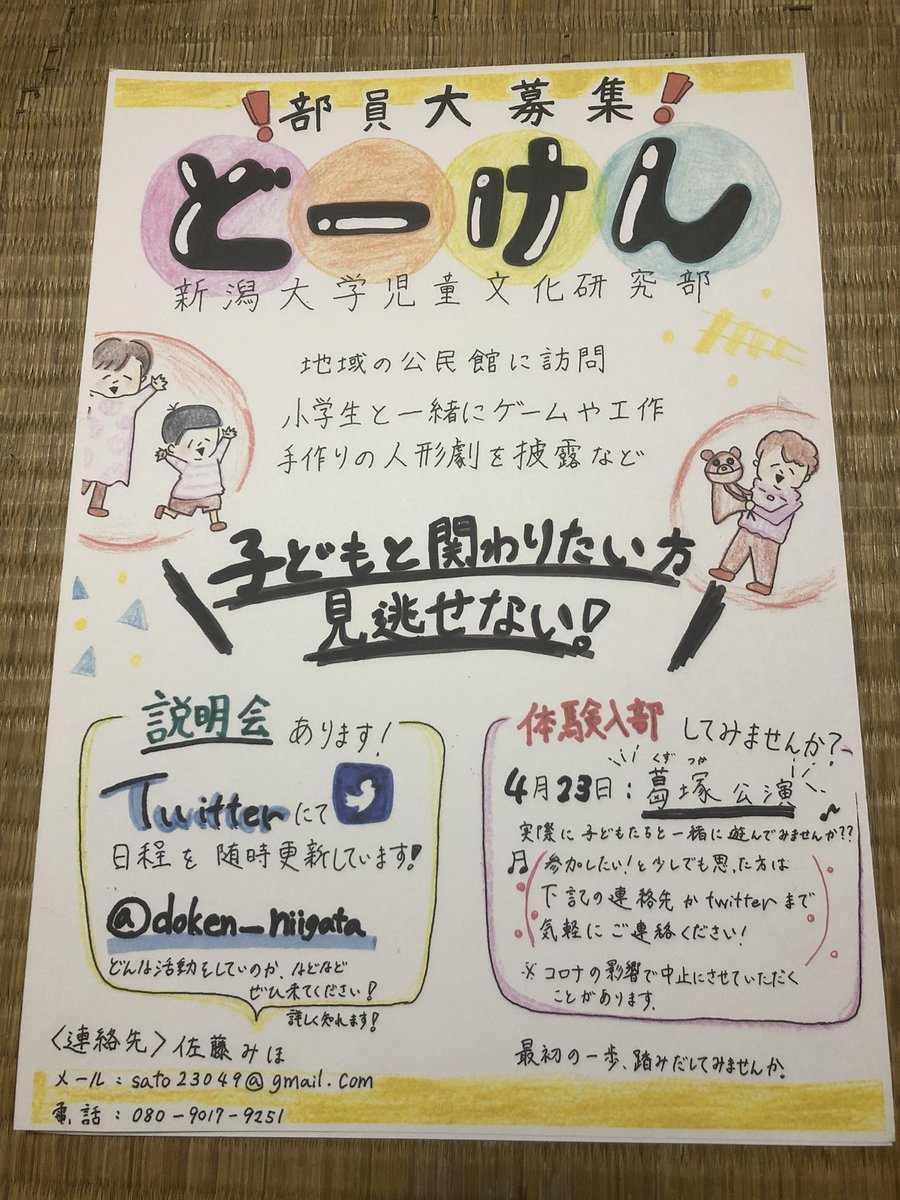 ！部員大募集！
どーけん
新潟大学児童文化研究部
地域の公民館に訪問
小学生と一緒にゲームや工作
手作りの人形劇を披露など
子どもと関わりたい方
見逃せない！
説明会あります！
Twitterにて
日程を随時更新しています！
@doken_niigata
どんな活動をしているのか、などなど
ぜひ来てください！
詳しく知れます！
体験入部してみませんか？
くず つか
4月23日：葛塚公演
実際に子どもたちと一緒に遊んでみませんか??
参加したい！と少しでも思った方は
下記の連絡先かtwitterまで
気軽にご連絡ください！
※コロナの影響で中止にさせていただく
ことがあります。
〈連絡先〉佐藤みほ
メール：sato23049@gmail.com
電話：080-9017-9251
最初の一歩、踏みだしてみませんか。